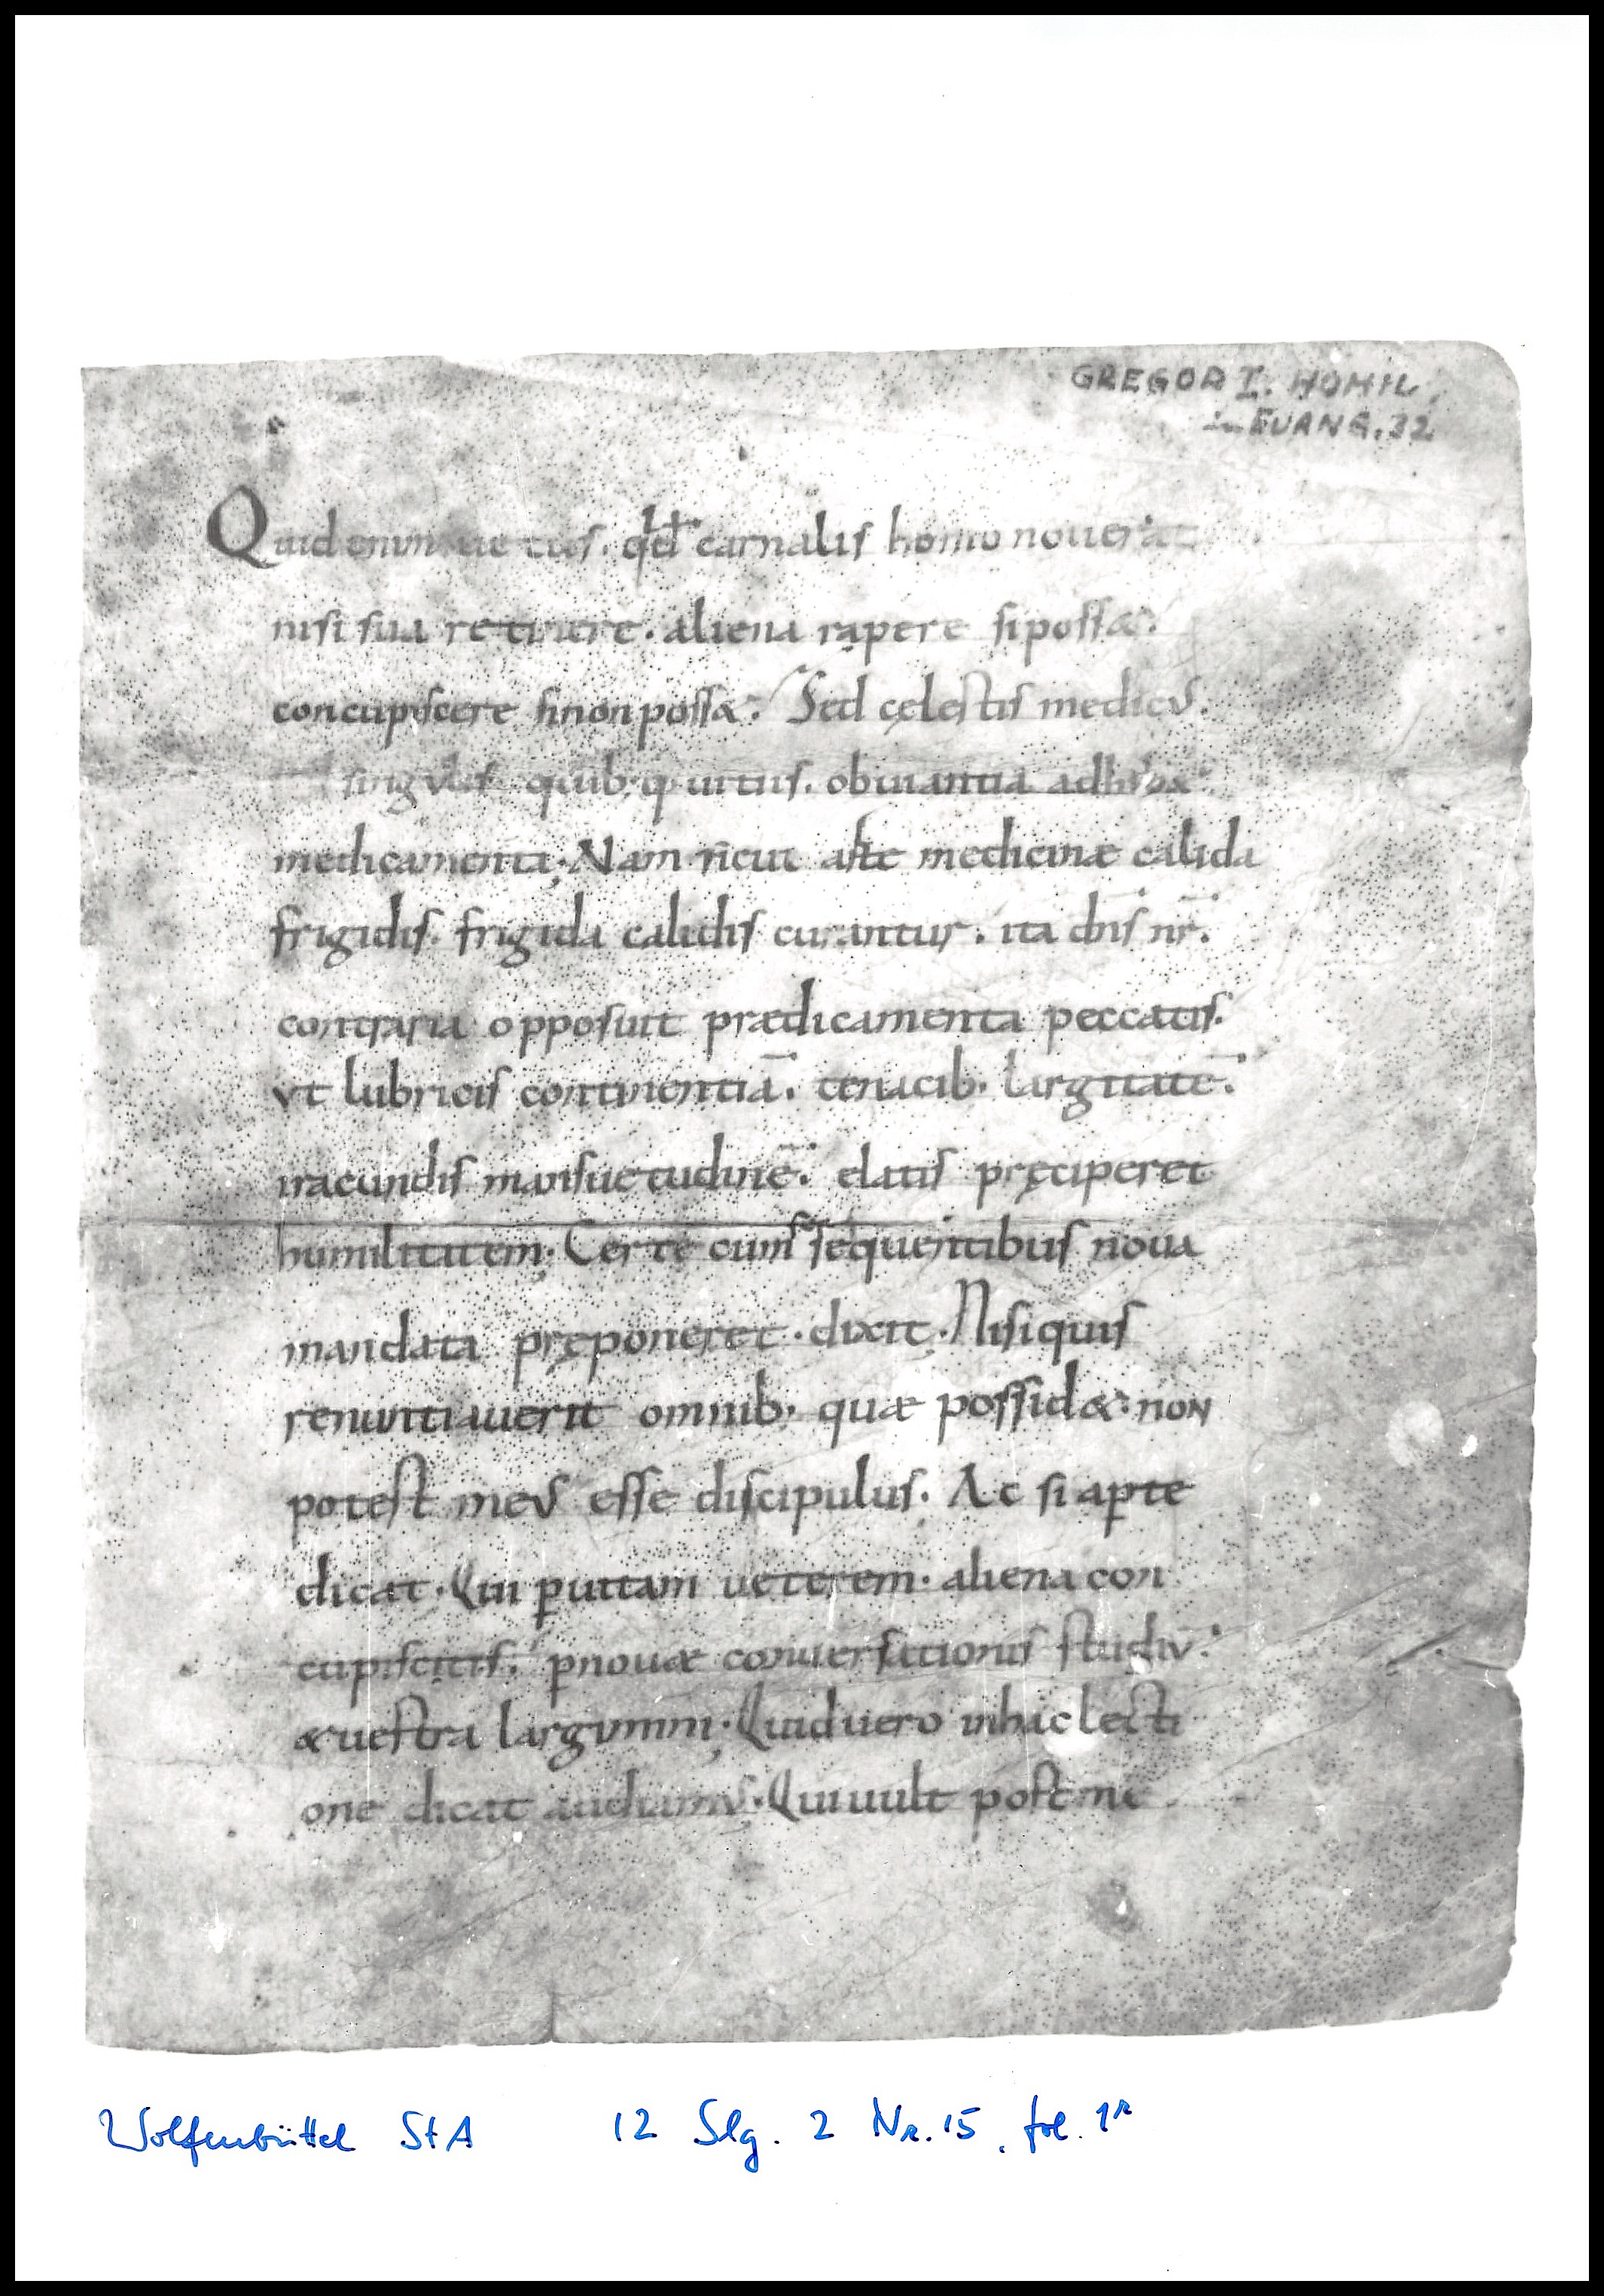 GREGOR I. HOMIL.
in EVANG. 32
Quid enim uetus. qđ carnalis homo nouerat
nisi sua retinere. aliena rapere si poss&.
concupiscere si non poss&. Sed cęlestis medicus.
singulis quib;q; uitiis. obuiantia adhib&
medicamenta; Nam sicut arte medicinæ calida
frigidis. frigida calidis curantur. ita dn̄s nr̄.
contraria opposuit prædicamenta peccatis.
vt lubricis continentiā. tenacib; largitatē.
iracundis mansuetudinē. elatis pręciperet
humilitatem; Certe cum sequentibus noua
mandata pręponeret. dixit. Nisi quis
renuntiauerit omnib; quæ possid&. non
potest meus esse discipulus. Ac si aꝑte
dicat. Qui ꝑ uitam ueterem. aliena con
cupiscitis. ꝑ nouæ conuersationis studiū.
& uestra largimini; Quid uero in hac lecti
one dicat audiamus. Qui uult post me
Wolfenbüttel StA 12 Slg. 2 Nr. 15, fol. 1r